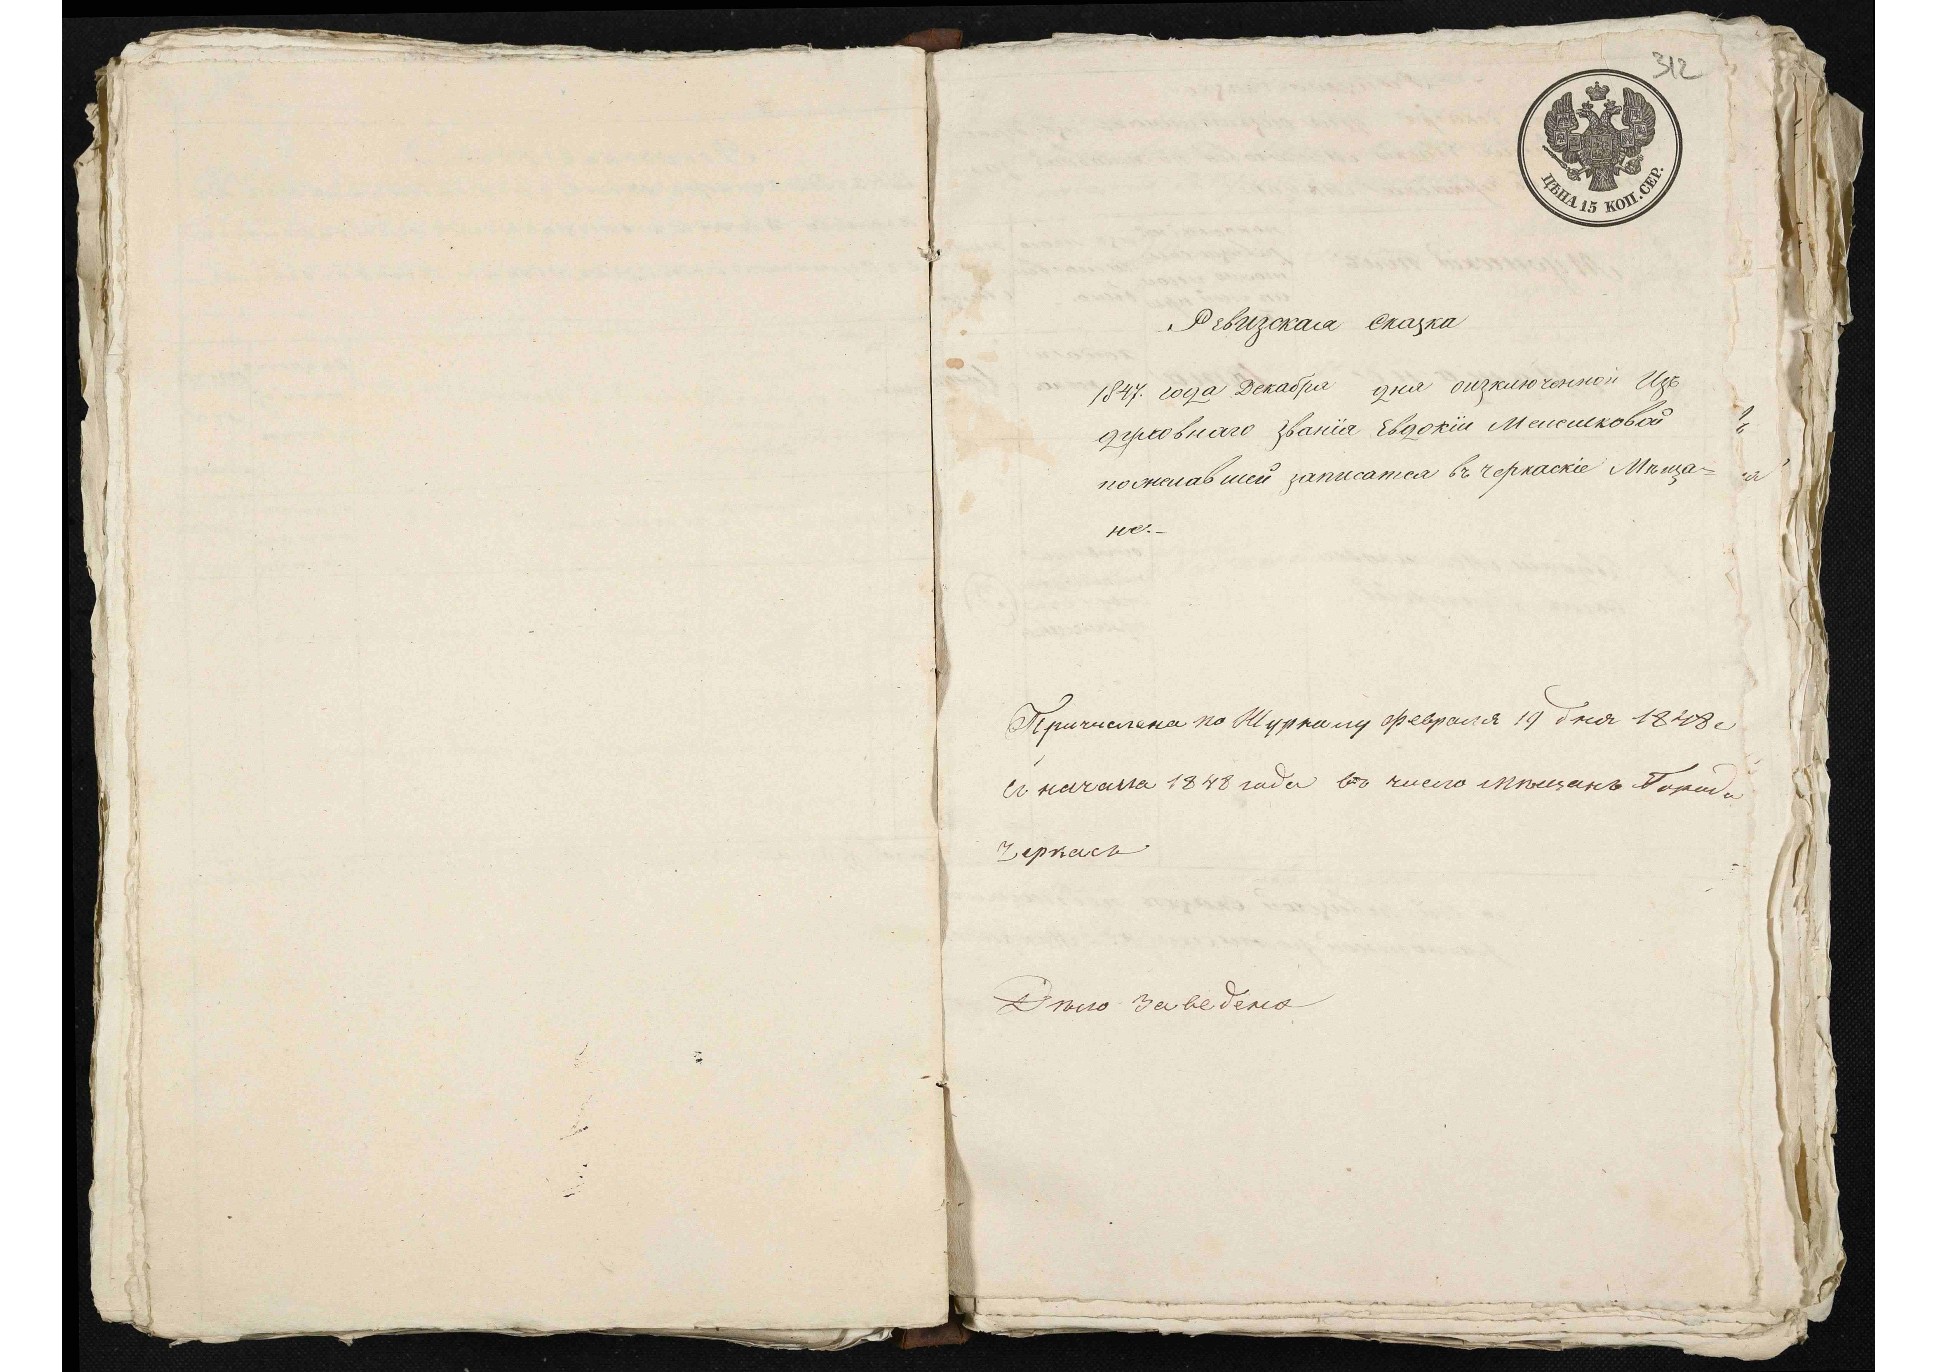 312
ЦѢНА 15 КОП. СЕР.
Ревизская Сказка
1847. года Декабря дня оизключенной Изъ
духовнаго званїя Евдокїи
пожелавшей записатся въ черкаскіе Мѣща-
не.-
Причислена по Журналу Февраля 19 дня 1848 г
съ начала 1848 года въ число Мѣщанъ Города
Черкасъ
Дѣло Заведено